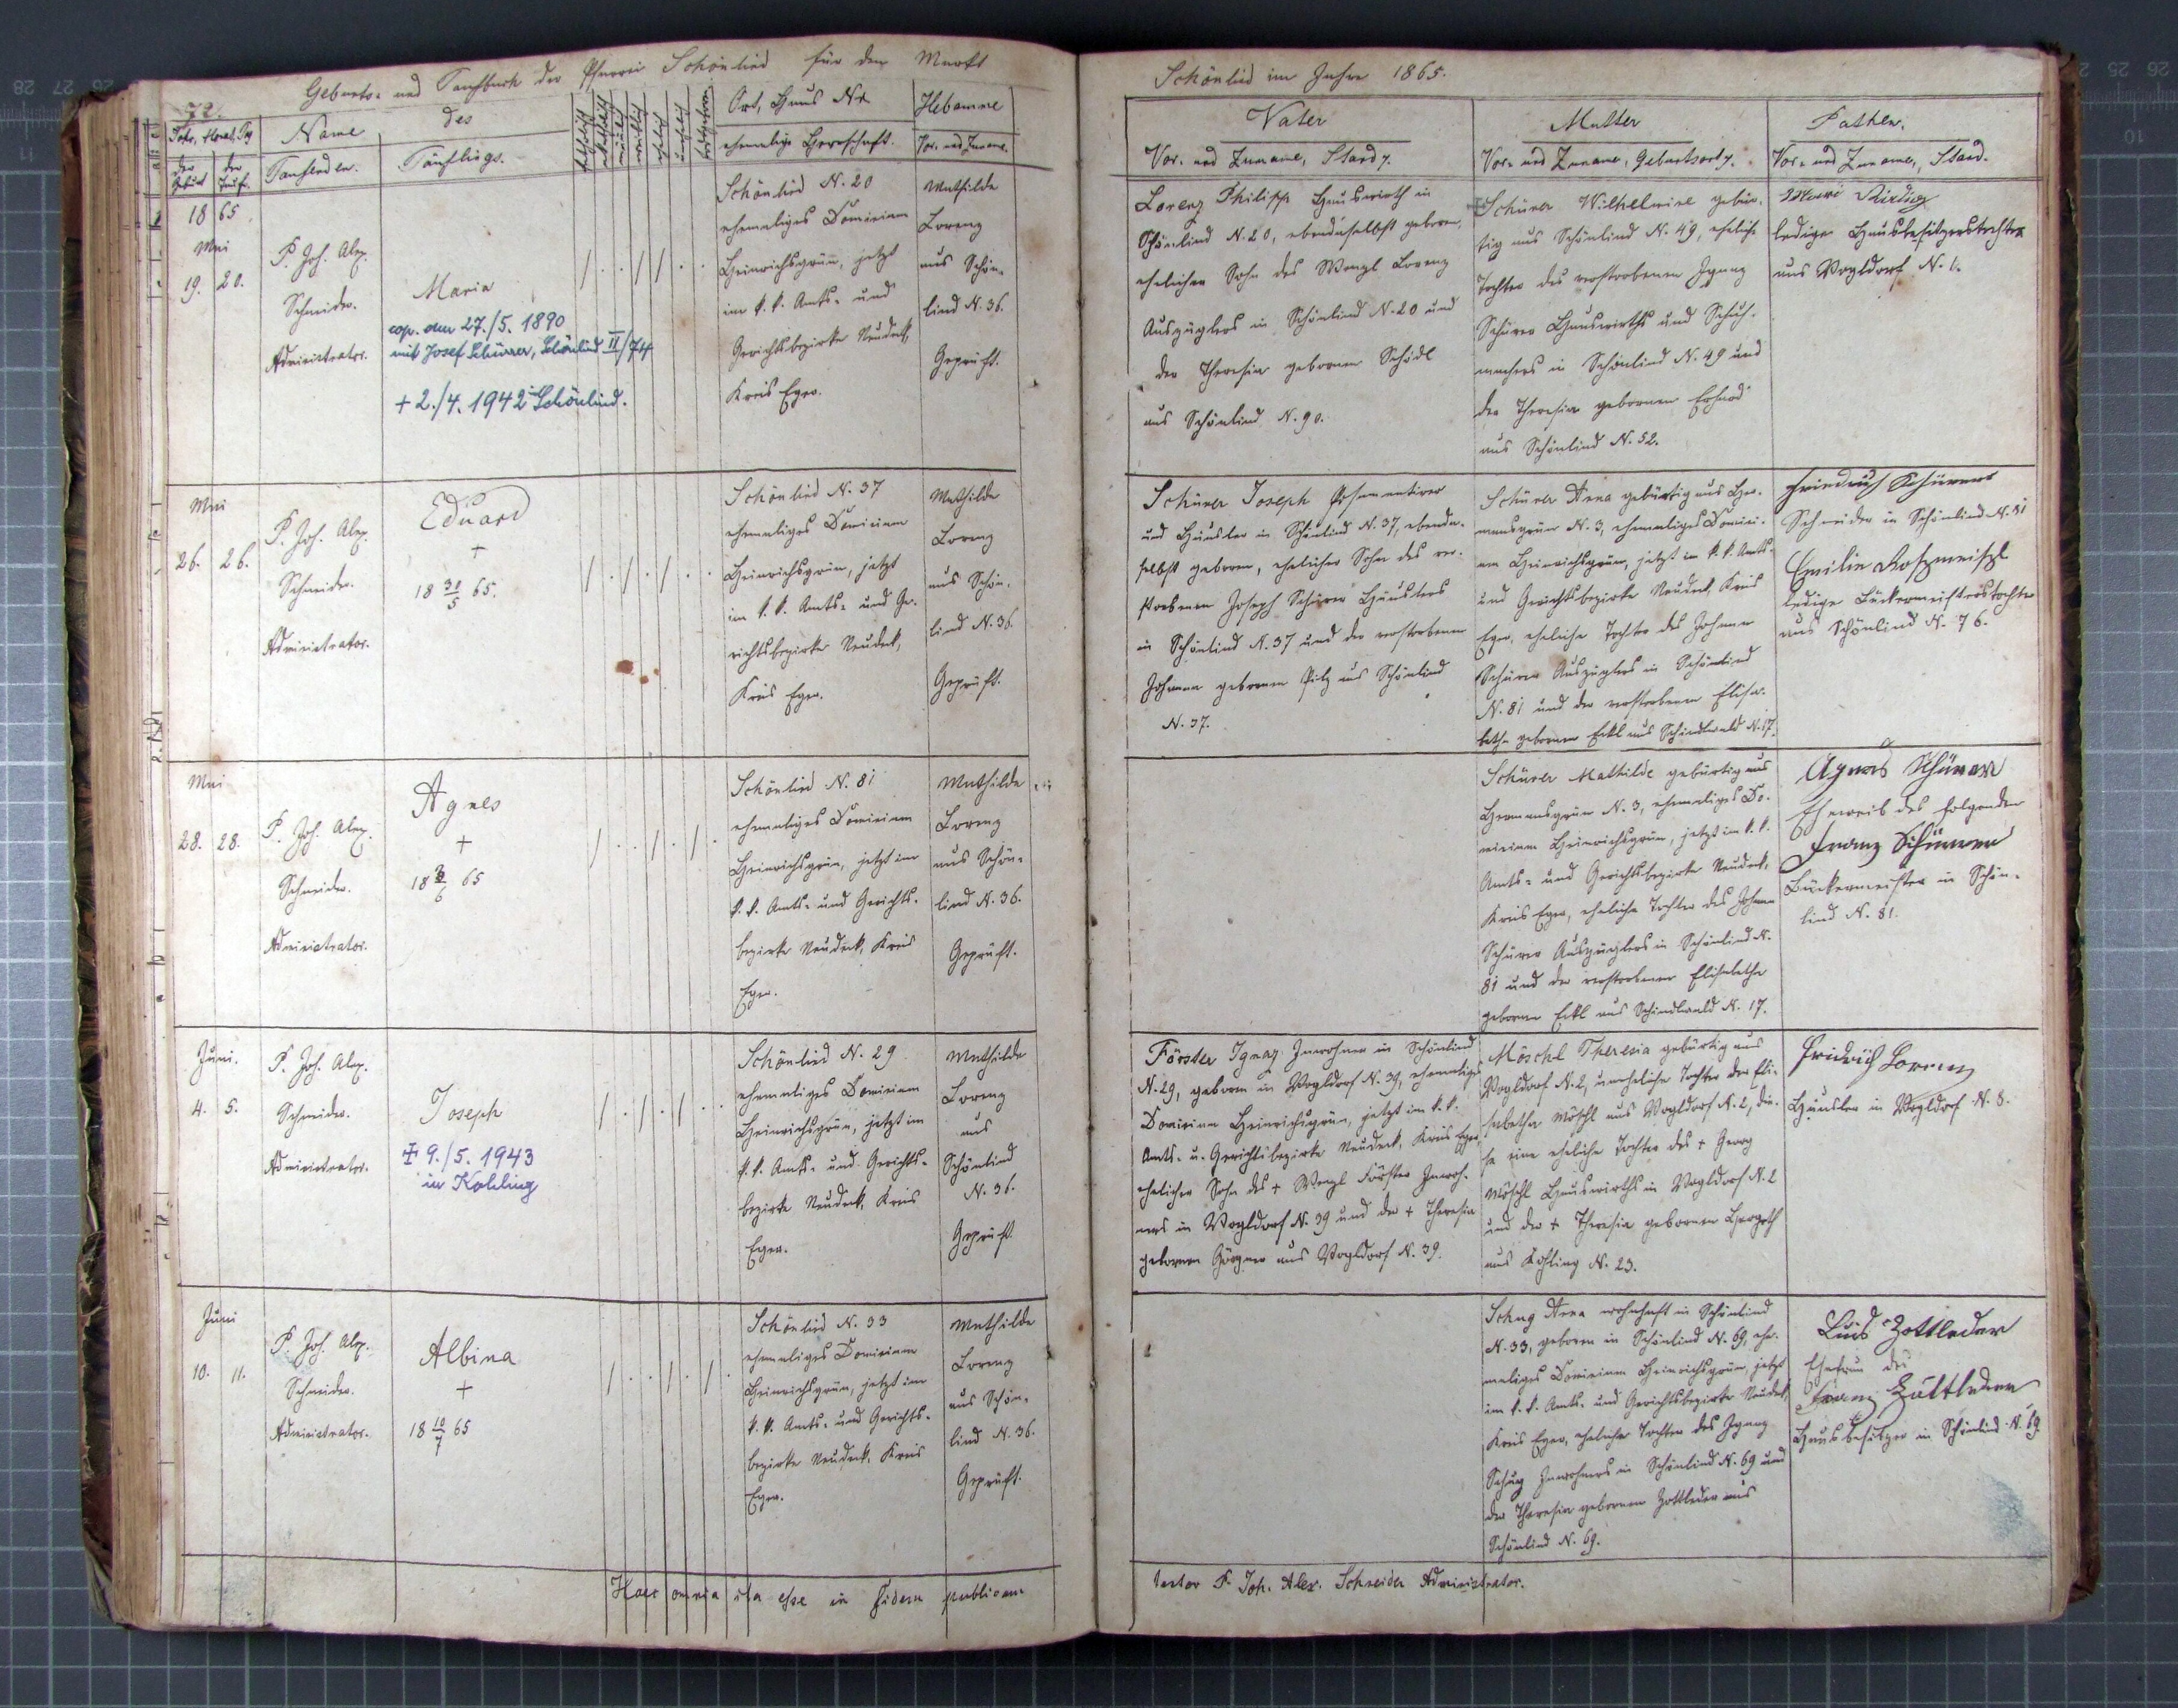 Geburts- und Taufbuch der Pfarrei Schönlind für den Markt
72.
Jahr, Monat, Tag
der Geburt
der Taufe
Name
des
Taufenden.
Täuflings.
katholisch
akatholisch
männlich
weiblich
ehelich
unehelich
todtgeboren
Ort, Haus Nr
ehemalige Herrschaft.
Hebamme
Vor- und Zuname.
1865
Mai
19. 20.
P. Joh. Alex.
Schneider.
Administrator.
Maria
cop. am 27./5. 1890
mit Josef Schürrer, Schönlind II/74
+ 2./4. 1942 Schönlind.
Schönlind N. 20
ehemaliges Dominium
Heinrichsgrün, jetzt
im k. k. Amts- und
Gerichtsbezirke Neudeck,
Kreis Eger.
Mathilde
Lorenz
aus Schön-
lind N. 36.
Geprüft.
Mai
26. 26.
P. Joh. Alex.
Schneider.
Administrator.
Eduard
+
18 31/5 65.
Schönlind N. 37
ehemaliges Dominium
Heinrichsgrün, jetzt
im k. k. Amts- und Ge-
richtsbezirke Neudeck,
Kreis Eger.
Mathilde
Lorenz
aus Schön-
lind N. 36.
Geprüft.
Mai
28. 28.
P. Joh. Alex.
Schneider.
Administrator.
Agnes
+
18 /6 65
Schönlind N. 81
ehemaliges Dominium
Heinrichsgrün, jetzt im
k. k. Amts- und Gerichts-
bezirke Neudeck, Kreis
Eger.
Mathilde
Lorenz
aus Schön-
lind N. 36.
Geprüft.
Juni.
4. 5.
P. Joh. Alex.
Schneider.
Administrator.
Joseph
+ 9./5. 1943
in Kohling
Schönlind N. 29
ehemaliges Dominium
Heinrichsgrün, jetzt im
k. k. Amts- und Gerichts-
bezirke Neudeck, Kreis
Eger.
Mathilde
Lorenz
aus
Schönlind
N. 36.
Geprüft
Juni
10. 11.
P. Joh. Alex.
Schneider.
Administrator.
Albina
+
18 10/7 65
Schönlind N. 33
ehemaliges Dominium
Heinrichsgrün, jetzt im
k. k. Amts- und Gerichts-
bezirke Neudeck, Kreis
Eger.
Mathilde
Lorenz
aus Schön-
lind N. 36.
Geprüft.
Haec omnia ita esse in fidem publicam
Schönlind im Jahre 1865.
Vater
Vor- und Zuname, Stand
Mutter
Vor- und Zuname, Geburtsort
Pathen.
Vor- und Zuname, Stand.
Lorenz Philipp Hauswirth in
Schönlind N. 20, ebendaselbst geboren,
ehelicher Sohn des Wenzl Lorenz
Auszüglers in Schönlind N. 20 und
der Theresia gebornen Schödl
aus Schönlind N. 90.
Schürer Wilhelmine gebür-
tig aus Schönlind N. 49, eheliche
Tochter des verstorbenen Ignaz
Schürer Hauswirths und Schuh-
machers in Schönlind N. 49 und
der Theresia gebornen
aus Schönlind N. 52.
ledige Hausbesitzerstochter
aus Vogldorf N. 1.
Schürer Joseph
und Häusler in Schönlind N. 37, ebenda-
selbst geboren, ehelicher Sohn des ver-
storbenen Joseph Schürer Häuslers
in Schönlind N. 37 und der verstorbenen
Johanna gebornen Pilz aus Schönlind
N. 37.
Schürer Anna gebürtig aus Her-
mannsgrün N. 3, ehemaliges Domini-
um Heinrichsgrün, jetzt im k. k. Amts-
und Gerichtsbezirke Neudeck, Kreis
Eger, eheliche Tochter des Johann
Schürer Auszüglers in Schönlind
N. 81 und der verstorbenen Elisa-
betha gebornen Eckl aus Schindlwald N. 17.
Friedrich Schürer
Schneider in Schönlind N. 81
Emilia Rossmeisl
ledige Bäckermeisterstochter
aus Schönlind N. 76.
Schürer Mathilde gebürtig aus
Hermannsgrün N. 3, ehemaliges Do-
minium Heinrichsgrün, jetzt im k. k.
Amts- und Gerichtsbezirke Neudeck,
Kreis Eger, eheliche Tochter des Johann
Schürer Auszüglers in Schönlind N.
81 und der verstorbenen Elisabetha
gebornen Eckl aus Schindlwald N. 17.
Agnes Schürer
Eheweib des folgenden
Franz Schürrer
Bäckermeister in Schön-
lind N. 81.
Förster Ignaz Inwohner in Schönlind
N. 29, geboren in Vogldorf N. 39, ehemaliges
Dominium Heinrichsgrün, jetzt im k. k.
Amts- u. Gerichtsbezirke Neudeck, Kreis Eger,
ehelicher Sohn des + Wenzl Förster Inwoh-
ners in Vogldorf N. 39 und der + Theresia
gebornen aus Vogldorf N. 39.
Möschl Theresia gebürtig aus
Vogldorf N. 2, uneheliche Tochter der Eli-
sabetha Möschl aus Vogldorf N. 2, die-
se eine eheliche Tochter des + Georg
Möschl Hauswirths in Vogldorf N. 2
und der + Theresia gebornen
aus Kohling N. 23.
Fridrich Lorenz
Häusler in Vogldorf N. 8.
Schug Anna wohnhaft in Schönlind
N. 33, geboren in Schönlind N. 69, ehe-
maliges Dominium Heinrichsgrün, jetzt
im k. k. Amts- und Gerichtsbezirke Neudeck,
Kreis Eger, eheliche Tochter des Ignaz
Schug Inwohners in Schönlind N. 69 und
der Theresia gebornen Zottleder aus
Schönlind N. 69.
Luis Zottleder
Ehefrau des
Franz Zottleder
Hausbesitzer in Schönlind N. 69
testor P. Joh. Alex. Schneider Administrator.